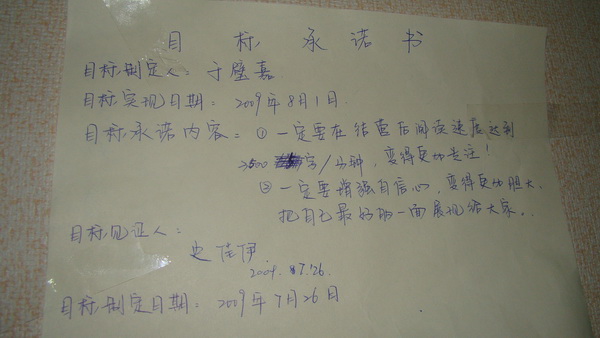 目标承诺书
目标制定人：于璧嘉
目标实现日期：2009年8月1日
目标承诺内容：①一定要在结营后阅读速度达到
2500字/分钟，变得更加专注！
②一定要增强自信心，变得更加胆大，
把自己最好的一面展现给大家。
目标见证人：
史佳伊
2009.7.26.
目标制定日期：2009年7月26日